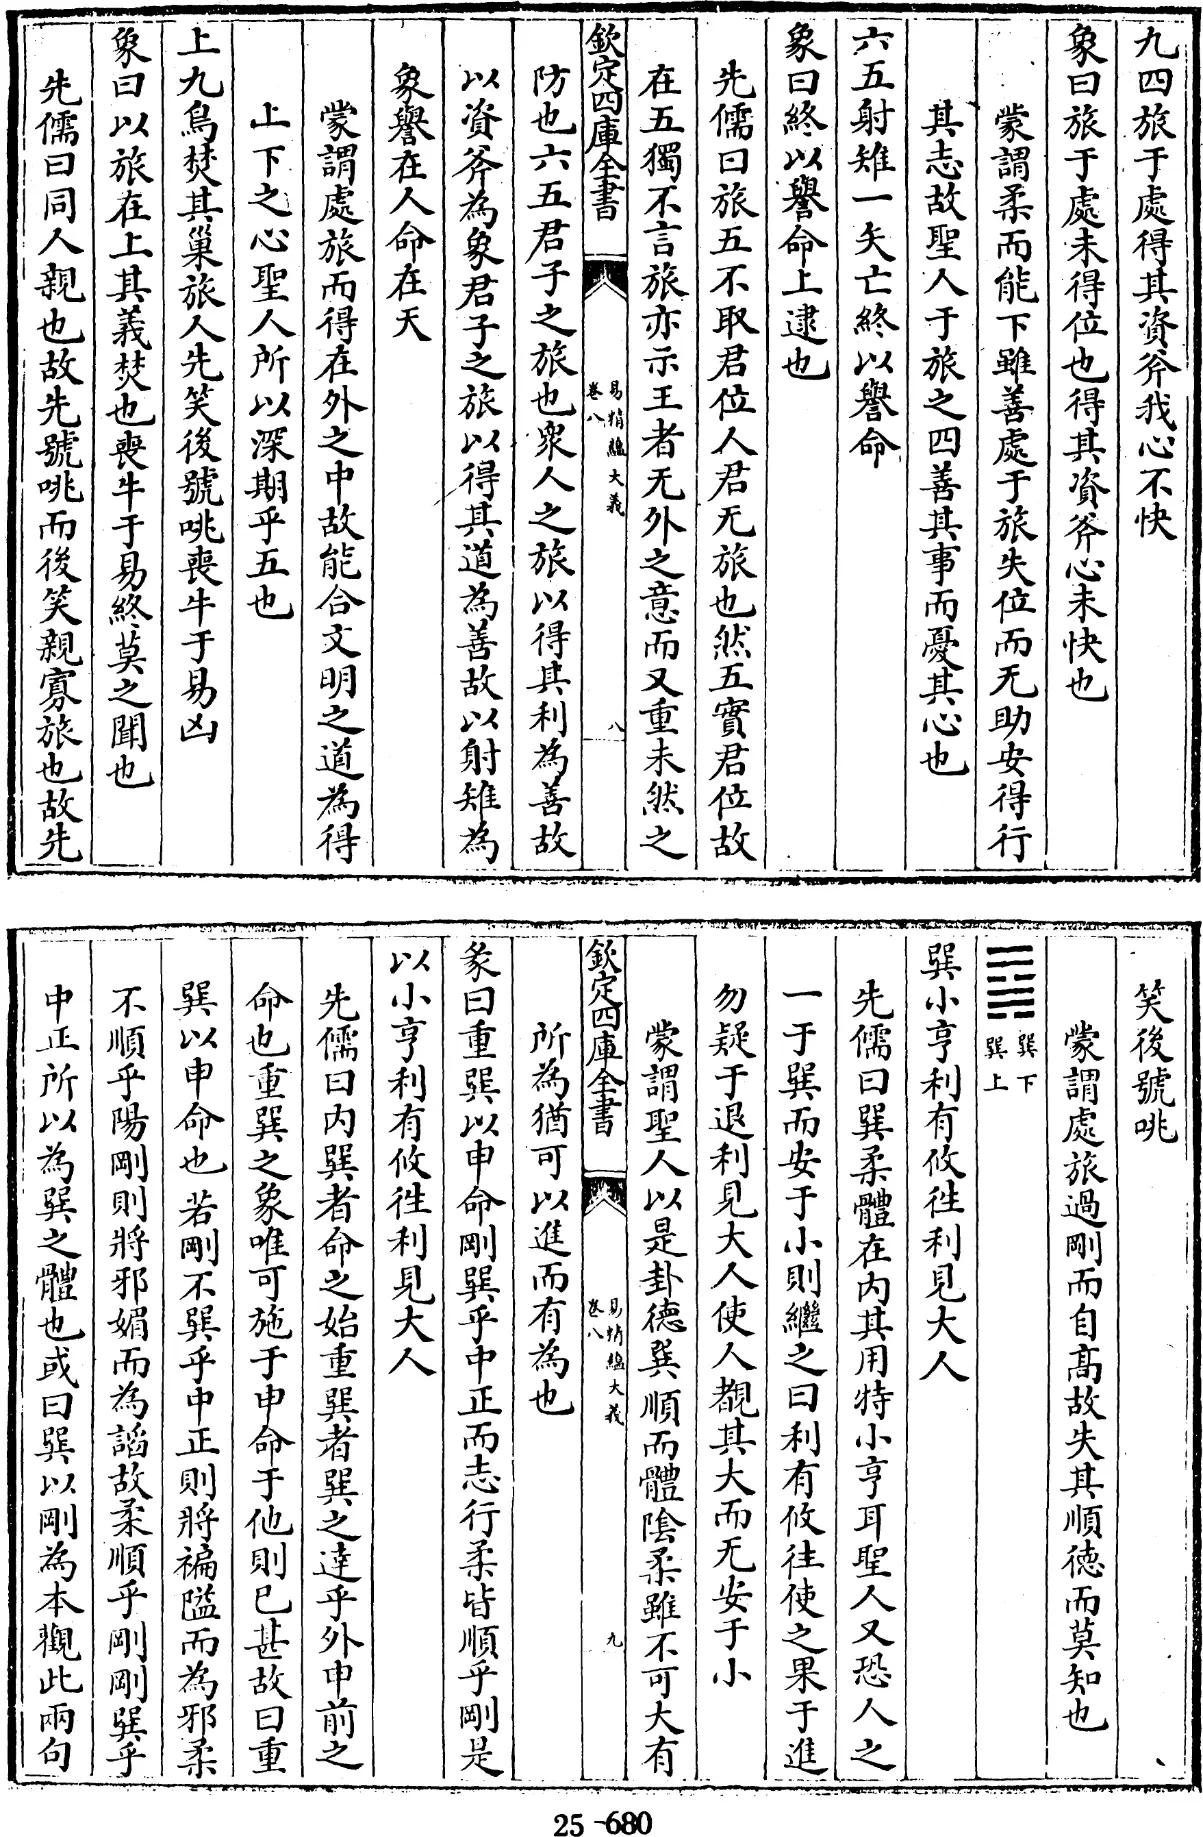 九四旅于處得其資斧我心不快
象曰旅于處未得位也得其資斧心未快也
蒙謂柔而能下雖善處于旅失位而无助安得行
其志故聖人于旅之四善其事而憂其心也
六五射雉一矢亡終以譽命
象曰終以譽命上逮也
先儒曰旅五不取君位人君无旅也然五實君位故
在五獨不言旅亦示王者无外之意而又重未然之
欽定四庫全書
易精蘊大義
卷八
八
防也六五君子之旅也衆人之旅以得其利為善故
以資斧為象君子之旅以得其道為善故以射雉為
象譽在人命在天
蒙謂處旅而得在外之中故能合文明之道為得
上下之心聖人所以深期乎五也
上九鳥焚其巢旅人先笑後號咷喪牛于易凶
象曰以旅在上其義焚也喪牛于易終莫之聞也
先儒曰同人親也故先號咷而後笑親寡旅也故先
笑後號咷
蒙謂處旅過剛而自髙故失其順徳而莫知也
巽下
巽上
巽小亨利有攸徃利見大人
先儒曰巽柔體在内其用特小亨耳聖人又恐人之
一于巽而安于小則繼之曰利有攸往使之果于進
勿疑于退利見大人使人覩其大而无安于小
蒙謂聖人以是卦德巽順而體陰柔雖不可大有
欽定四庫全書
易精蘊大義
卷八
九
所為猶可以進而有為也
彖曰重巽以申命剛巽乎中正而志行柔皆順乎剛是
以小亨利有攸徃利見大人
先儒曰内巽者命之始重巽者巽之達乎外申前之
命也重巽之象唯可施于申命于他則已甚故曰重
巽以申命也若剛不巽乎中正則將褊隘而為邪柔
不順乎陽剛則將邪媚而為謟故柔順乎剛剛巽乎
中正所以為巽之體也或曰巽以剛為本觀此兩句
25-680